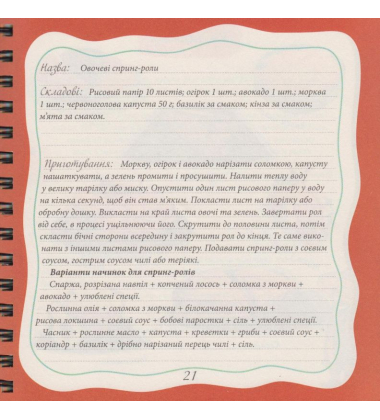 Назва: Овочеві спринг-роли
Складові: Рисовий папір 10 листів; огірок 1 шт.; авокадо 1 шт.; морква
1 шт.; червоноголова капуста 50 г; базилік за смаком; кінза за смаком;
м'ята за смаком.
Приготування: Моркву, огірок і авокадо нарізати соломкою, капусту
нашаткувати, а зелень промити і просушити. Налити теплу воду
у велику тарілку або миску. Опустити один лист рисового паперу у воду
на кілька секунд, щоб він став м'яким. Покласти лист на тарілку або
обробну дошку. Викласти на край листа овочі та зелень. Завертати рол
від себе, в процесі ущільнюючи його. Скрутити до половини листа, потім
скласти бічні сторони всередину і закрутити рол до кінця. Те саме вико-
нати з іншими листами рисового паперу. Подавати спринг-роли з соєвим
соусом, гострим соусом чилі або теріякі.
Варіанти начинок для спринг-ролів
Спаржа, розрізана навпіл + копчений лосось + соломка з моркви +
авокадо + улюблені спеції.
Рослинна олія + соломка з моркви + білокачанна капуста +
рисова локшина + соєвий соус + бобові паростки + сіль + улюблені спеції.
Часник + рослинне масло + капуста + креветки + гриби + соєвий соус +
коріандр + базилік + дрібно нарізаний перець чилі + сіль.
21